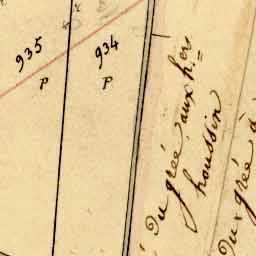 935
P
934
P
Du grée aux h.ers
houssin
Du grée à